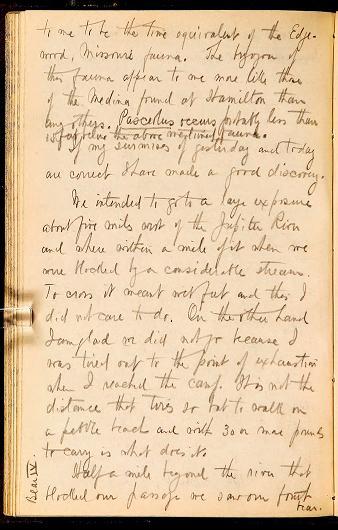 to me to be the time equivalent of the Edge-
wood, Missouri fauna. The bryozoa of
this fauna appear to me more like those
of the Medina found at Hamilton than
any others. Pascellus occurs probably less than
15 feet below the above mentioned fauna.
If my surmises of yesterday and today
are correct I have made a good discovery.
We intended to go to a large exposure
about five miles west of the Jupiter River
and when within a mile of it when we
were blocked by a considerable stream.
To cross it meant wet feet and this I
did not care to do. On the other hand
I am glad we did not go because I
was tired out to the point of exhaustion
when I reached the camp. It is not the
distance that tires so but to walk on
a pebble beach and with 30 or more pounds
to carry is what does it.
Bear IV.
Half a mile beyond the river that
blocked our passage we saw our fourth
bear.